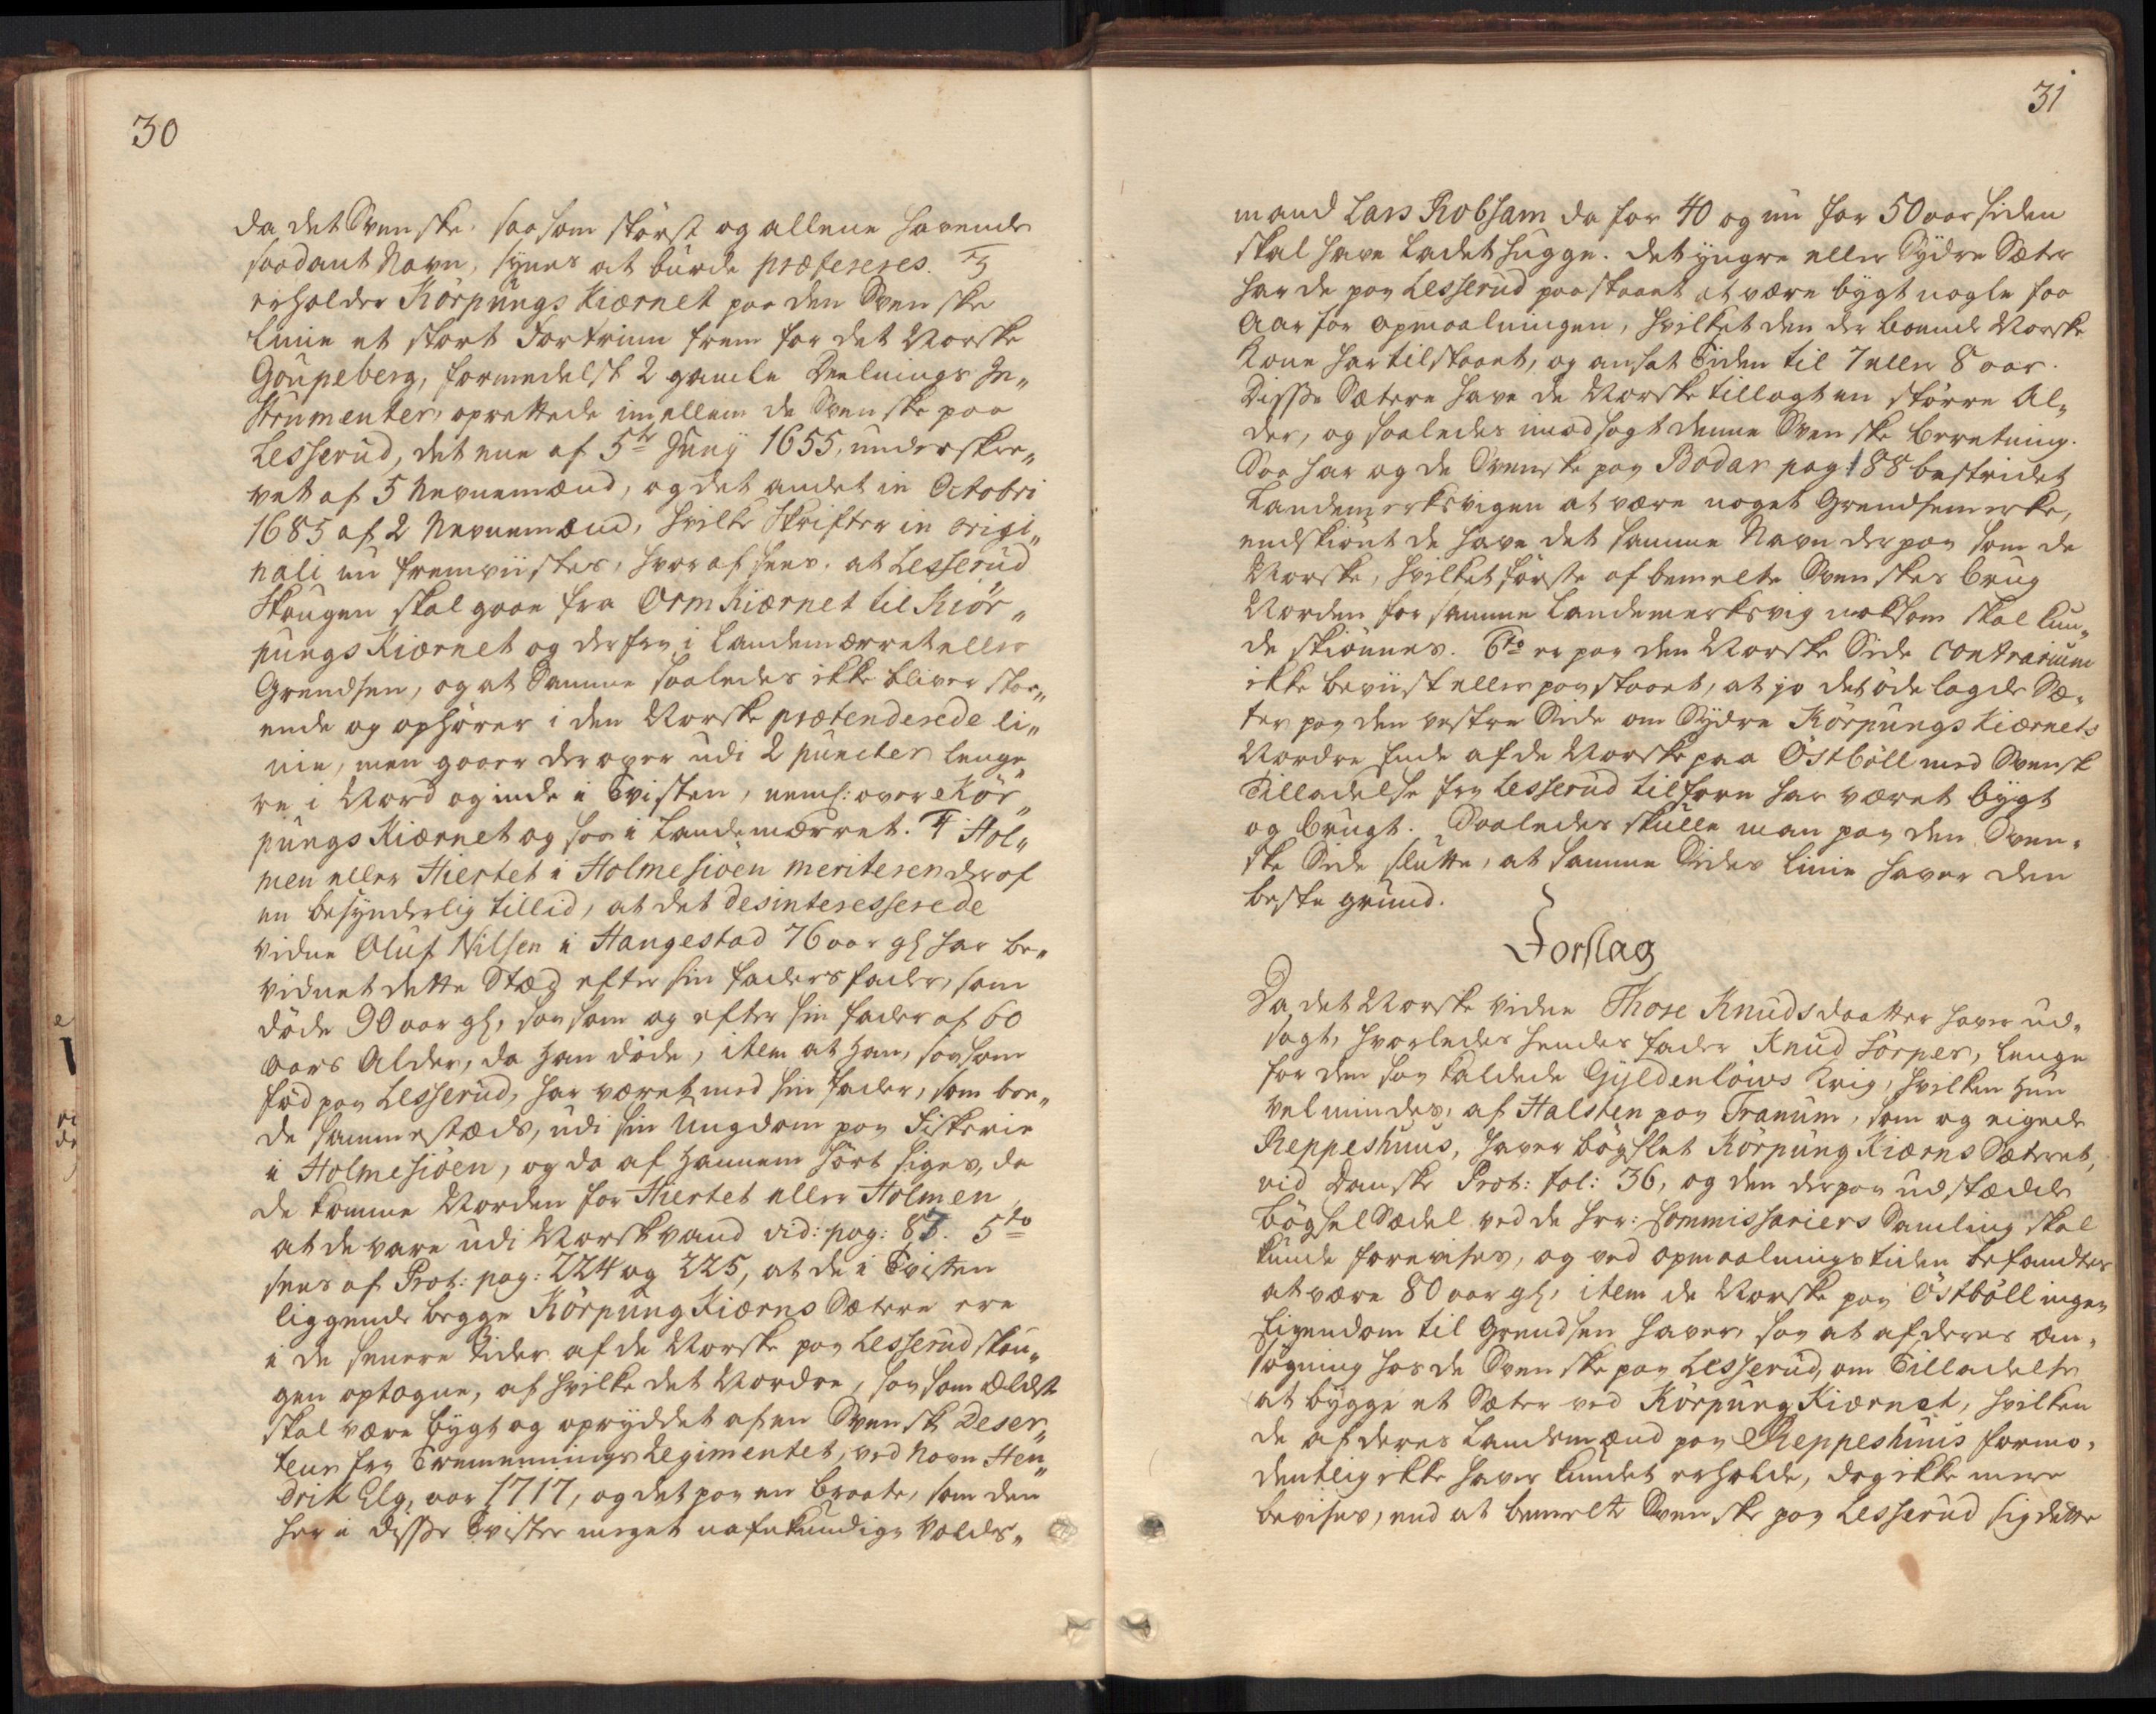 30
da det Svenske, saasom störst og allene havende
saadant Navn, synes at burde præfereres. 3
erholder Körpungs Kiærnet paa den Svenske
Linie et stort Fortrin frem for det Norske
Goupeberg, formedelst 2 gamle Deelnings In„
strumenter, oprettede imellem de Svenske paa
Lesserud, det ene af 5te Juny 1655, underskre„
vet af 5 Nevnemænd, og det andet in Octobri
1685 af 2 Nevnemænd, hvilke Skrifter in origi„
nali nu fremviistes, hvoraf sees, at Lesserud
Skougen skal gaae fra Orm Kiærnet til Kiör„
pungs Kiærnet og derfra i Landemærret eller
Grendsen, og at Samme saaledes ikke bliver stae„
ende og ophörer i den Norske prætenderede li„
nie, men gaaer derover udi 2 puncter lenge„
re i Nord og inde i Tvisten, neml: over Kör„
pungs Kiærnet og saa i Landemærret. 4 Hol„
men eller Hiertet i Holmesiöen meriteren deraf
en besynderlig tillid, at det desinteresserede
Vidne Oluf Nilsen i Haugestad 76 aar gl har be„
vidnet dette Stæd efter sin faders fader, som
döde 90 aar gl, saasom og efter sin fader af 60
aars Alder, da han döde, item at han, saasom
föd paa Lesserud, har været med sin fader, som boe„
de sammestæds, udi sin Ungdom paa Fiskerie
i Holmesiöen, og da af hannem hört siges, da
de komme Norden for Hiertet eller Holmen
at de vare udi Norsk vand vid: pag: 87. 5to
sees af Prot: pag: 224 og 225, at de i Tvisten
liggende begge Körpung Kiærns Sætere ere
i de senere Tider af de Norske paa Lesserud skou„
gen optagne, af hvilke det Nordre, saasom ældst
skal være bygt og opryddet af en Svensk Deser„
teur fra Tremennings Regimentet, ved Navn Hen„
drik Elg, aar 1717, og det paa en Braate, som den
her i disse Tvister meget nafnkundige Volds„
31
mand Lars Robsam da for 40 og nu for 50 aar siden
skal have ladet hugge. det yngre eller Sydre Sæter
har de paa Lesserud paastaaet at være bygt nogle faa
Aar for opmaalningen, hvilket den der boende Norske
Kone har tilstaaet, og ansat Tiden til 7 eller 8 aar.
Disse Sætere have de Norske tillagt en större Al„
der, og saaledes imodsagt denne Svenske beretning.
Saa har og de Svenske paa Bodar pag: 188 bestridet
Landemerksvigen at være noget Grendsemerke,
endskiönt de have det samme Navn derpaa som de
Norske, hvilket förste af bemelte Svenskes brug
Norden for samme Landemerksvig noksom skal kun„
de skiönnes. 6to er paa den Norske Side contrarium
ikke beviist eller paastaaet, at jo det ödelagde Sæ„
ter paa den vestre Side om Sydre Körpungs Kiærnets
Nordre Ende af de Norske paa Östböll med Svensk
Tilladelse fra Lesserud tilforn har været bygt
og brugt. Saaledes skulle man paa den Sven„
ske Side slutte, at samme Sides Linie haver den
beste grund.
Forslag
Da det Norske Vidne Thore Knudsdaatter haver ud„
sagt, hvorledes hendes fader Knud Törper, lenge
for den saa kaldede Gyldenlöws Krig, hvilken hun
vel mindes, af Halsten paa Tranum, som og eigede
Reppeshuus, haver bögslet Körpung Kiærns Sæteret,
vid Danske Prot: fol: 36, og den derpaa udstædde
Bögsel Sædel ved de Hrr: Commissariers Samling skal
kunde forevises, og ved opmaalningstiden befandtes
at være 80 aar gl, item de Norske paa Östböll ingen
Eigendom til Grendsen haver, saa at af deres an„
sögning hos de Svenske paa Lesserud, om Tilladelse
at bygge et Sæter ved Körpung Kiærnet, hvilken
de af deres Landsmænd paa Reppeshuus formo„
dentlig ikke haver kundet erholde, dog ikke mere
bevises, end at bemelte Svenske paa Lesserud sig dette